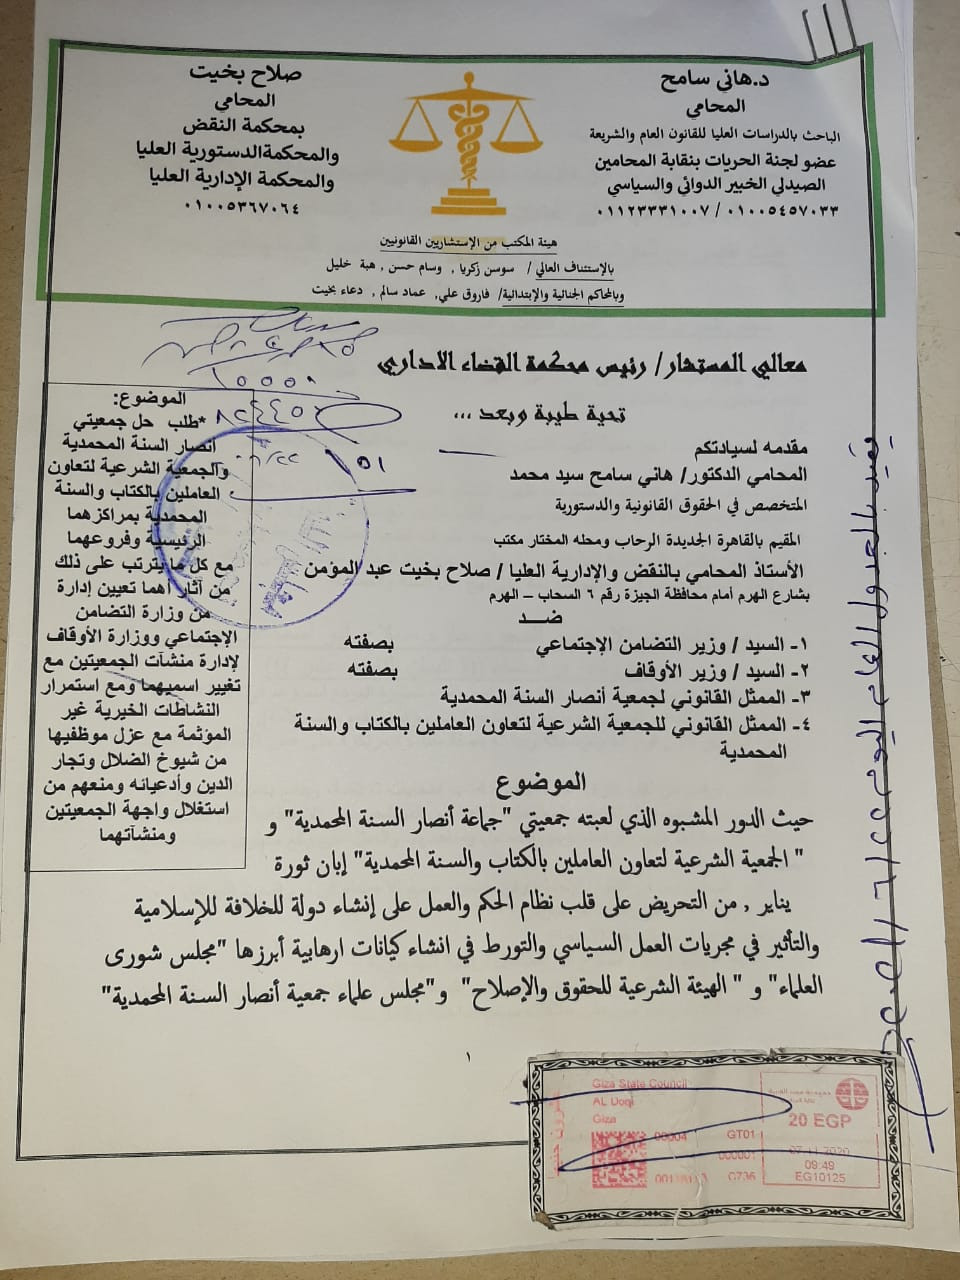 د.هاني سامح
المحامي
الباحث بالدراسات العليا للقانون العام والشريعة
عضو لجنة الحريات بنقابة المحامين
الصيدلي الخبير الدوائي والسياسي
٠١١٢٣٣٣١٠٠٧ / ٠١٠٠٥٤٥٧٠٣٣
صلاح بخيت
المحامي
بمحكمة النقض
والمحكمةالدستورية العليا
والمحكمة الإدارية العليا
٠١٠٠٥٣٦٧٠٦٤
هيئة المكتب من الإستشاريين القانونيين
بالإستئناف العالي / سوسن زكريا , وسام حسن , هبة خليل
وبالمحاكم الجنائية والإبتدائية/ فاروق علي, عماد سالم , دعاء بخيت
معالي المستشار/ رئيس محكمة القضاء الاداري
تحية طيبة وبعد ...
مقدمه لسيادتكم
المحامي الدكتور/ هاني سامح سيد محمد
المتخصص في الحقوق القانونية والدستورية
المقيم بالقاهرة الجديدة الرحاب ومحله المختار مكتب
الأستاذ المحامي بالنقض والإدارية العليا / صلاح بخيت عبد المؤمن
بشارع الهرم أمام محافظة الجيزة رقم ٦ السحاب – الهرم
ضـــد
١- السيد / وزير التضامن الإجتماعي بصفته
٢- السيد / وزير الأوقاف بصفته
٣- الممثل القانوني لجمعية أنصار السنة المحمدية
٤- الممثل القانوني للجمعية الشرعية لتعاون العاملين بالكتاب والسنة
المحمدية
الموضوع:
*طلب حل جمعيتي
انصار السنة المحمدية
والجمعية الشرعية لتعاون
العاملين بالكتاب والسنة
المحمدية بمراكزهما
الرئيسية وفروعهما
مع كل ما يترتب على ذلك
من آثار أهما تعيين إدارة
من وزارة التضامن
الإجتماعي ووزارة الأوقاف
لإدارة منشآت الجمعيتين مع
تغيير اسميهما ومع استمرار
النشاطات الخيرية غير
المؤثمة مع عزل موظفيها
من شيوخ الضلال وتجار
الدين وأدعيائه ومنعهم من
استغلال واجهة الجمعيتين
ومنشآتهما
الموضوع
حيث الدور المشبوه الذي لعبته جمعيتي "جماعة أنصار السنة المحمدية" و
" الجمعية الشرعية لتعاون العاملين بالكتاب والسنة المحمدية" إبان ثورة
يناير , من التحريض على قلب نظام الحكم والعمل على إنشاء دولة للخلافة للإسلامية
والتأثير في مجريات العمل السياسي والتورط في انشاء كيانات ارهابية أبرزها "مجلس شورى
العلماء" و " الهيئة الشرعية للحقوق والإصلاح" و"مجلس علماء جمعية أنصار السنة المحمدية"
١
Giza State Council
AL Doqi
Giza
20 EGP
00004 GT01
000001
G736
07-11-2020
09:49
EG10125